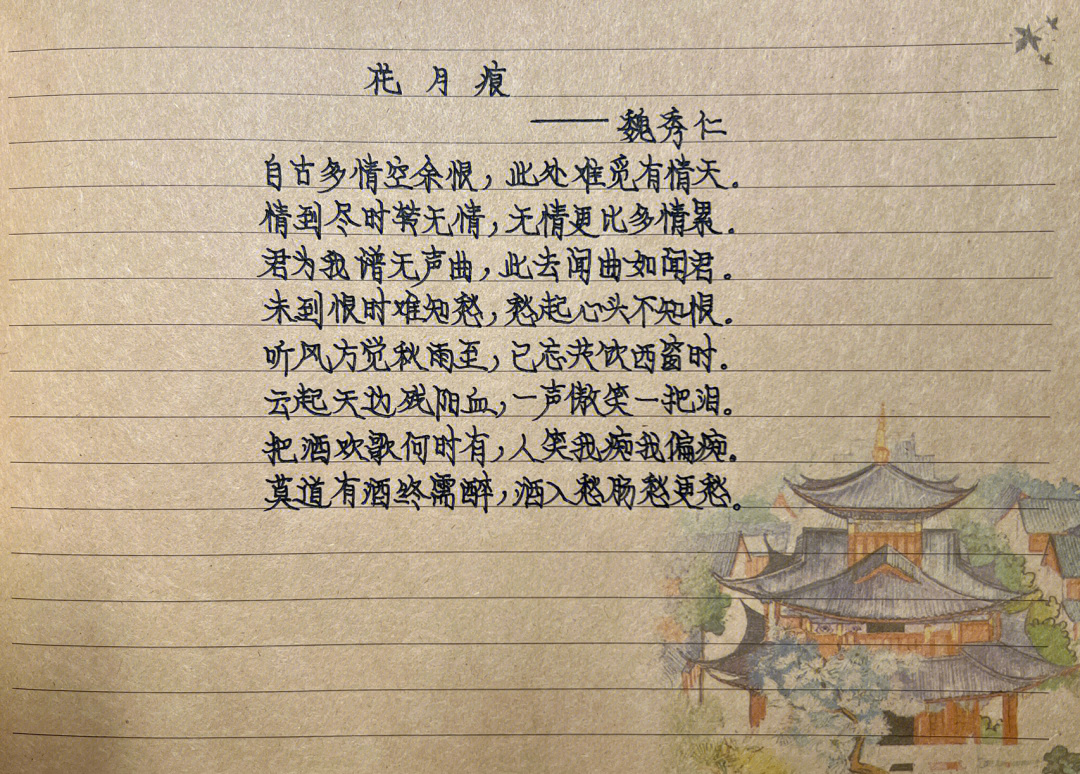 花月痕
——魏秀仁
自古多情空余恨，此处难觅有情天。
情到尽时转无情，无情更比多情累。
君为我谱无声曲，此去闻曲如闻君。
未到恨时难知愁，愁起心头不知恨。
听风方觉秋雨至，已忘共饮西窗时。
云起天边残阳血，一声傲笑一把泪。
把酒欢歌何时有，人笑我痴我偏痴。
莫道有酒终需醉，酒入愁肠愁更愁。